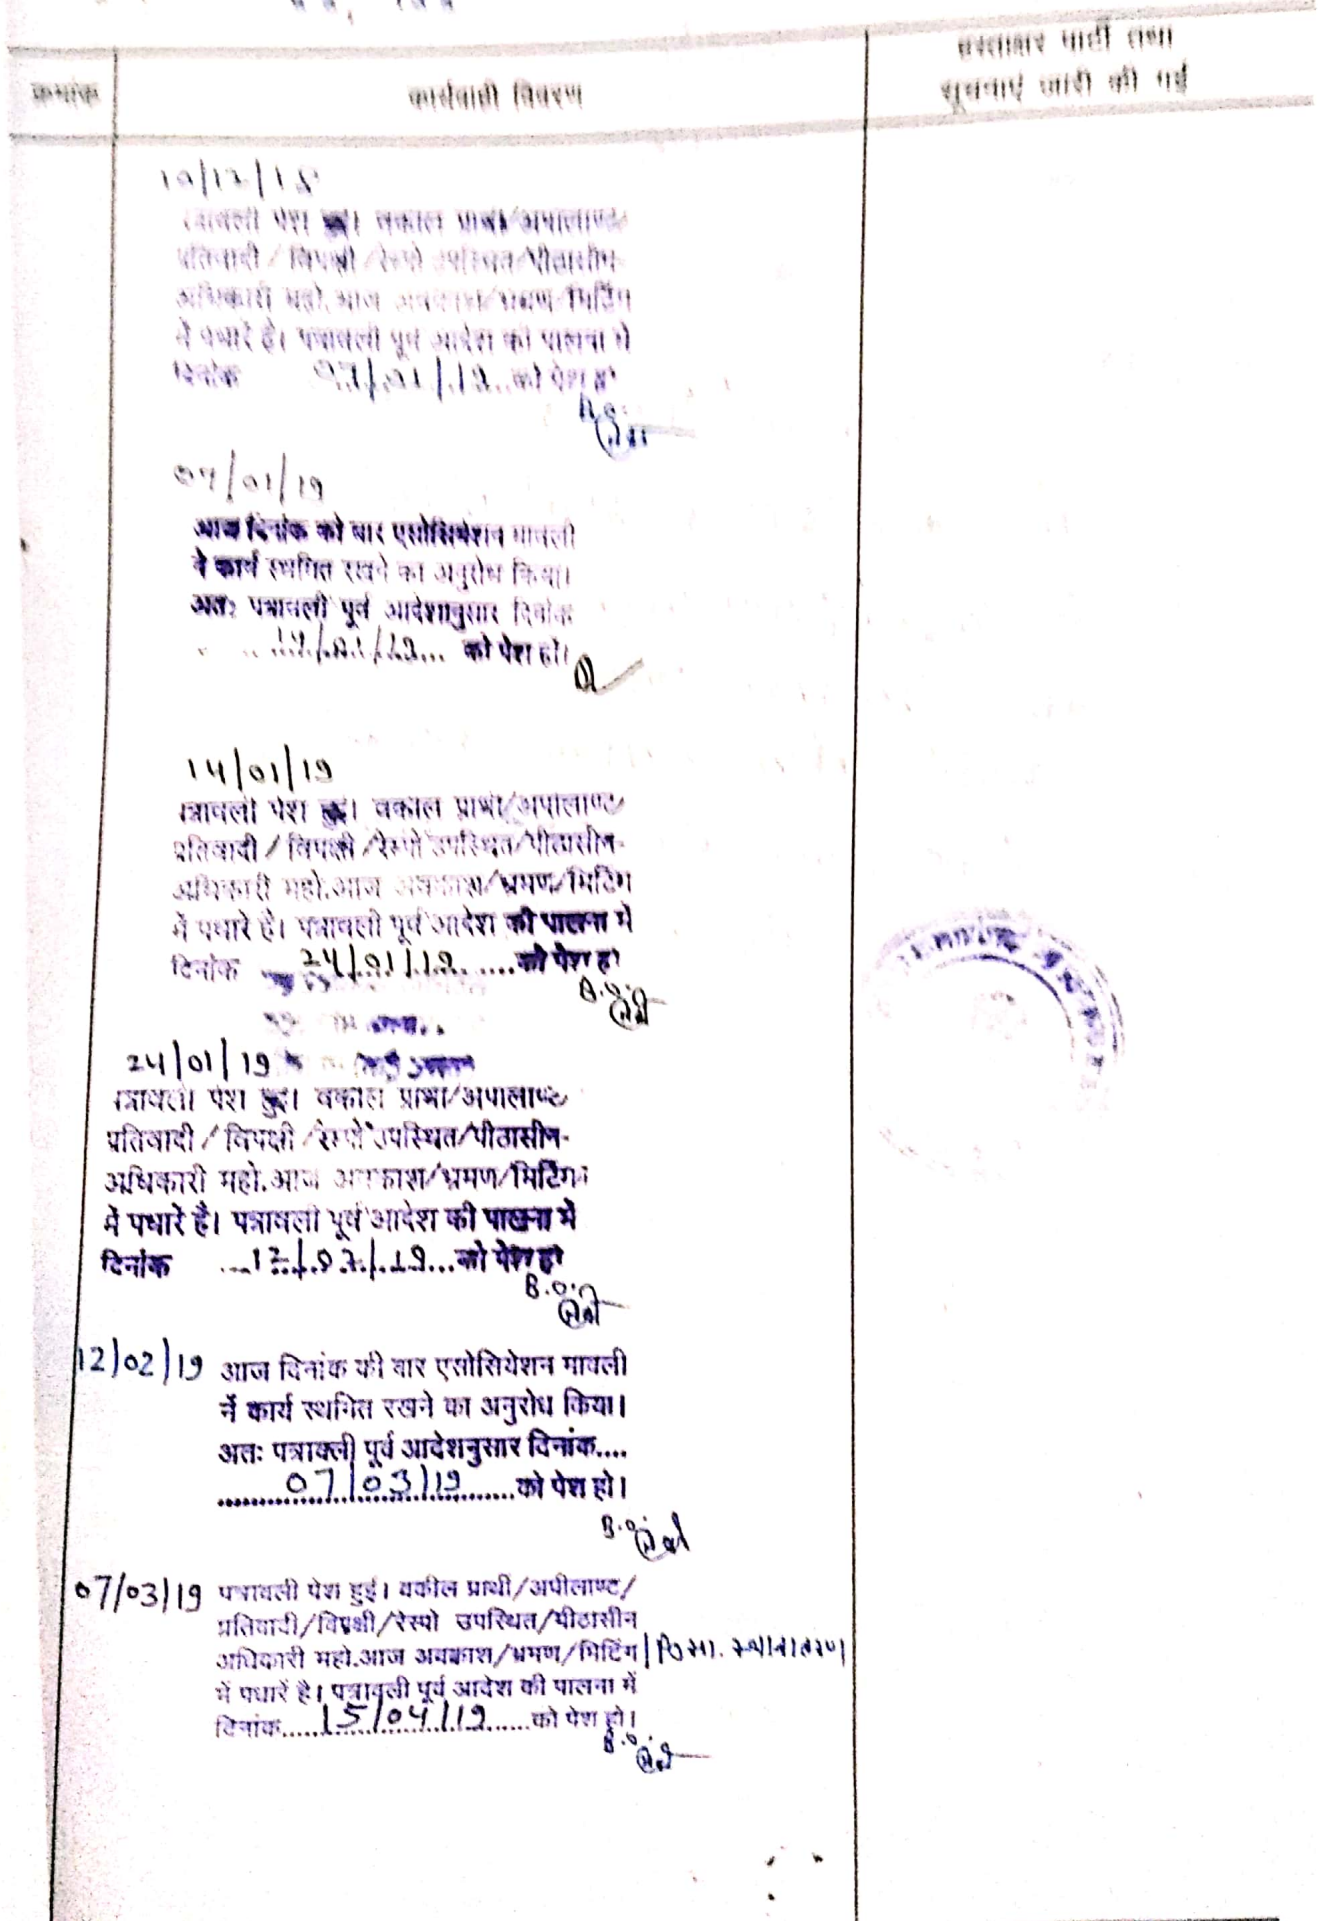 हस्ताक्षर पार्टी तथा
क्रमांक कार्यवाही विवरण सूचनाएं जारी की गई
10/12/18
पत्रावली पेश हुई। वकील प्रार्थी/अपीलाण्ट/
प्रतिवादी/विपक्षी/रेस्पो उपस्थित/पीठासीन-
अधिकारी महो.आज अवकाश/भ्रमण/मिटिंग
में पधारे है। पत्रावली पूर्व आदेश की पालना में
दिनांक 07/01/19 को पेश हो
07/01/19
आज दिनांक को बार एसोसियेशन मावली
ने कार्य स्थगित रखने का अनुरोध किया।
अतः पत्रावली पूर्व आदेशानुसार दिनांक
14/01/19... को पेश हो।
14/01/19
पत्रावली पेश हुई। वकील प्रार्थी/अपीलाण्ट/
प्रतिवादी/विपक्षी/रेस्पो उपस्थित/पीठासीन-
अधिकारी महो.आज अवकाश/भ्रमण/मिटिंग
में पधारे है। पत्रावली पूर्व आदेश की पालना में
दिनांक 24/01/19 ....को पेश हो
B.O.
24/01/19
पत्रावली पेश हुई। वकील प्रार्थी/अपीलाण्ट/
प्रतिवादी/विपक्षी/रेस्पो उपस्थित/पीठासीन-
अधिकारी महो.आज अवकाश/भ्रमण/मिटिंग
में पधारें है। पत्रावली पूर्व आदेश की पालना में
दिनांक ...12/02/19...को पेश हो
B.O.
12/02/19 आज दिनांक की बार एसोसियेशन मावली
नें कार्य स्थगित रखने का अनुरोध किया।
अतः पत्रावली पूर्व आदेशनुसार दिनांक....
......07/03/19......को पेश हो।
B.O.
07/03/19 पत्रावली पेश हुई। वकील प्रार्थी/अपीलाण्ट/
प्रतिवादी/विपक्षी/रेस्पो उपस्थित/पीठासीन
अधिकारी महो.आज अवकाश/भ्रमण/मिटिंग/ स्थानान्तरण
में पधारें है। पत्रावली पूर्व आदेश की पालना में
दिनांक......15/04/19......को पेश हो।
B.O.